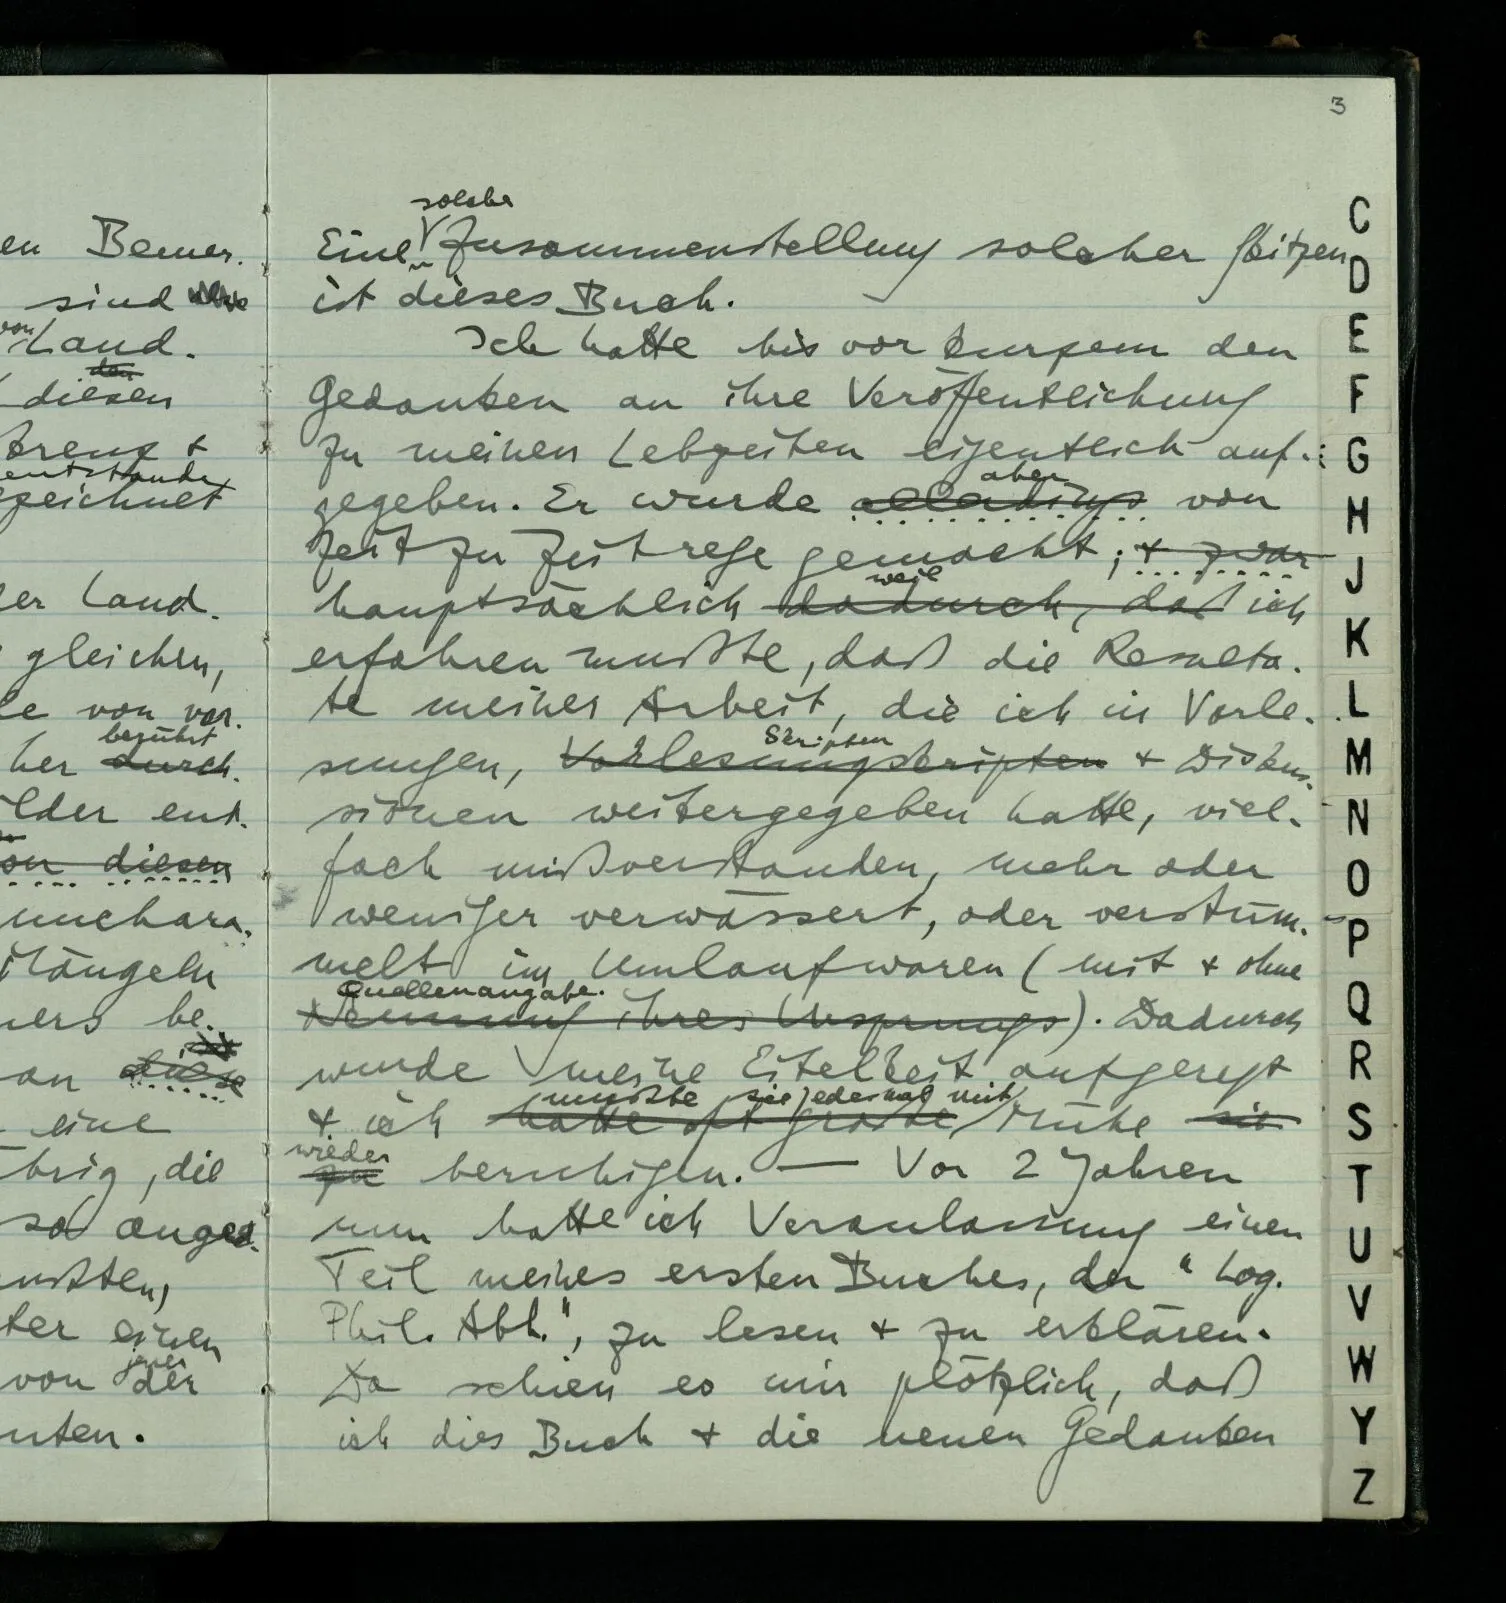 3
en Bemer.
sind
von
Land.
den
diesen
streng +
entstanden
zeichnet
er Land.
gleichen,
le von vor.
berührt
her durch.
ilder ent.
on diesen
uuchara.
Mängeln
ners be.
an diese
eine
brig, die
so anged.
ußten,
ter einen
jener
von der
nten.
solche
Eine Zusammenstellung solcher Skitzen
ist dieses Buch.
Ich hatte bis vor kurzem den
Gedanken an ihre Veröffentlichung
zu meinen Lebzeiten eigentlich auf-
aber
gegeben. Er wurde allerdings von
Zeit zu Zeit rege gemacht; + zwar
weil
hauptsächlich dadurch, daß ich
erfahren mußte, daß die Resulta-
te meiner Arbeit, die ich in Vorle-
Skripten
sungen, Vorlesungskripten + Diskus-
sionen weitergegeben hatte, viel-
fach mißverstanden, mehr oder
weniger verwässert, oder verstüm-
melt im Umlauf waren (mit + ohne
Quellenangabe.
Nennung ihres Ursprungs). Dadurch
wurde meine Eitelkeit aufgeregt
mußte sie jedesmal mit
+ ich hatte oft große Mühe sie
wieder
zu beruhigen. — Vor 2 Jahren
nun hatte ich Veranlassung einen
Teil meines ersten Buches, der "Log.
Phil. Abh.", zu lesen + zu erklären.
Da schien es mir plötzlich, daß
ich dies Buch + die neuen Gedanken
C
D
E
F
G
H
J
K
L
M
N
O
P
Q
R
S
T
U
V
W
Y
Z